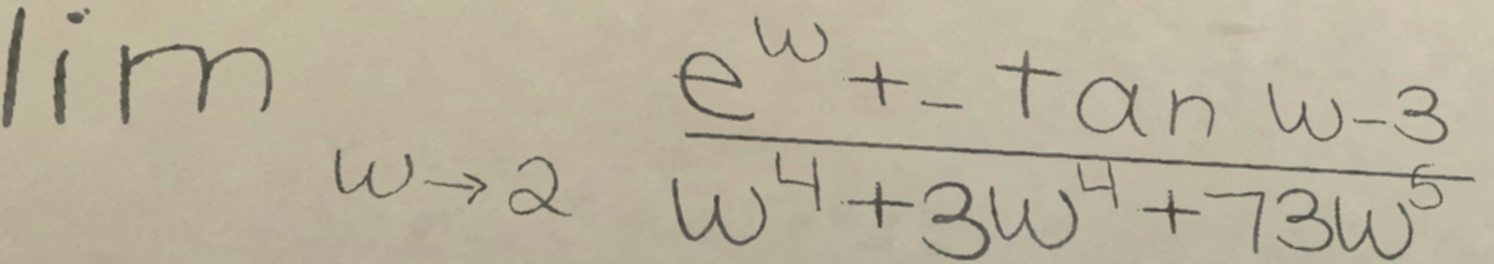 \lim_{w \to 2} \frac{e^w + - \tan w - 3}{w^4 + 3w^4 + 73w^5}